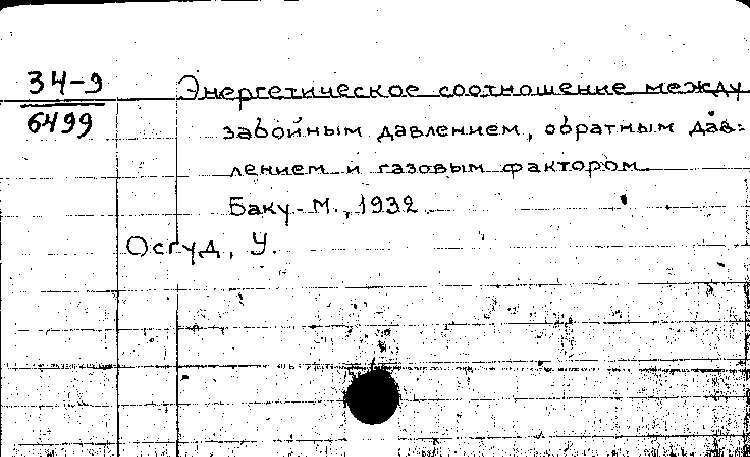 34-9
6499
Энергетическое соотношение между
забойным давлением, обратным дав=
лением и газовым фактором.
Баку-М., 1932.
Осгуд, У.